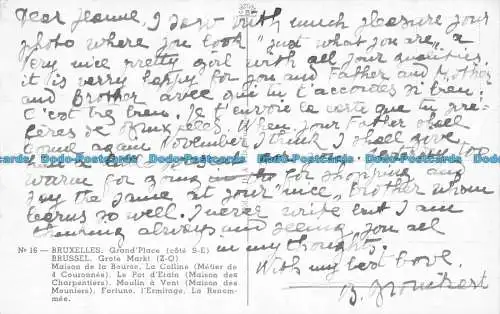 Dear Jeanne, I saw with much pleasure your
photo where you look "just what you are," a
very nice pretty girl with all your qualities.
it is verry happy for you and Father and Mother
and Brother avec qui tu t'accordes si bien.
C'est très bien. Je t'envoie la carte que tu pré-
fères de Bruxelles. When your Father shall
come again November I think I shall give
warm for going for shopping and
say the same at your "nice" Brother whom
learns so well. I never write but I am
thinking always and seeing you all
in my thoughts.
With my best love.
B.
Dodo-Postcards Dodo-Postcards Dodo-Postcards Dodo-Postcards
Nº 16 — BRUXELLES. Grand'Place (côté S-E)
BRUSSEL. Grote Markt (Z-O)
Maison de la Bourse, La Colline (Métier de
4 Couronnés), Le Pot d'Etain (Maison des
Charpentiers), Moulin à Vent (Maison des
Meuniers), Fortune, l'Ermitage, La Renom-
mée.